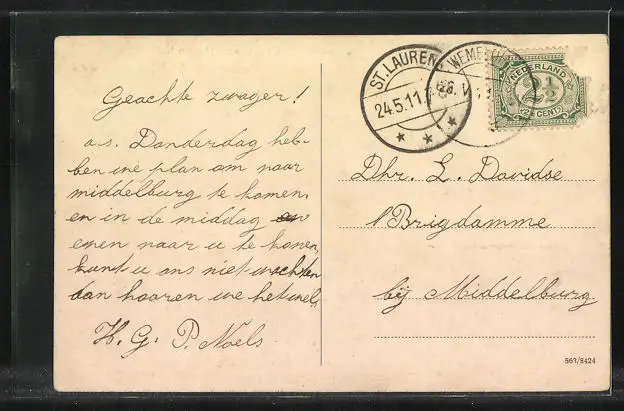 Geachte zwager!
a.s. Donderdag heb-
ben we plan om naar
middelburg te komen,
en in de middag
even naar u te komen,
kunt u ons niet wachten
dan hooren we het wel,
H. G. P. Noels
ST. LAUREN
24.5.11
WEME
NEDERLAND
2½
2½ CENT
Dhr. L. Davidse
t'Brigdamme
bij Middelburg
569/8424